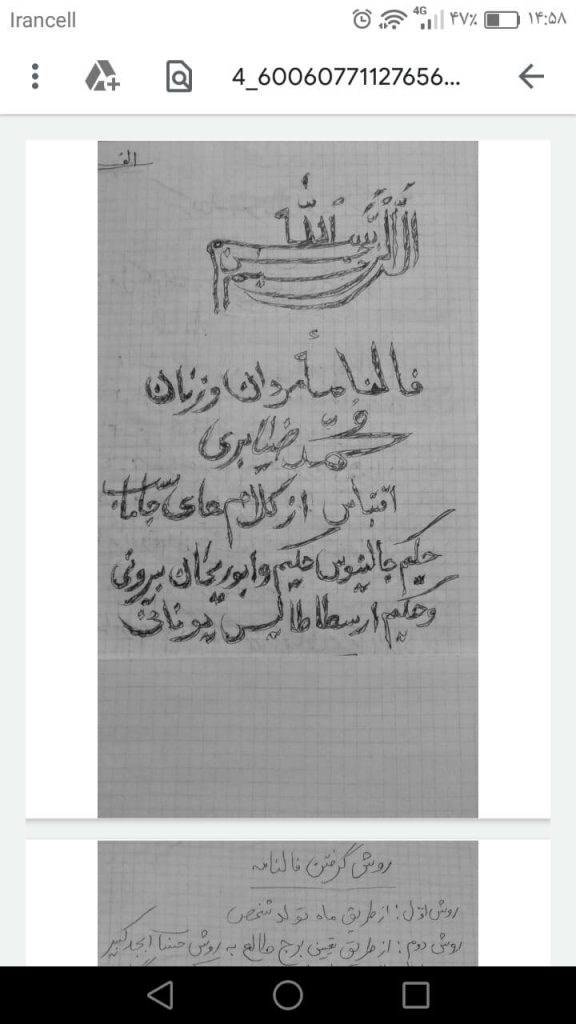 Irancell
4G ۴۷٪ ۱۴:۵۸
4_60060771127656...
الف
بسم الله الرحمن الرحیم
فالنامهٔ مردان و زنان
محمد
اقتباس از کلام های جاماسب
حکیم جالینوس حکیم و ابوریحان بیرونی
و حکیم ارسطاطالیس یونانی
روش گرفتن فالنامه
روش اول: از طریق ماه تولد شخص
روش دوم: از طریق تعیین برج طالع به روش حساب ابجد کبیر